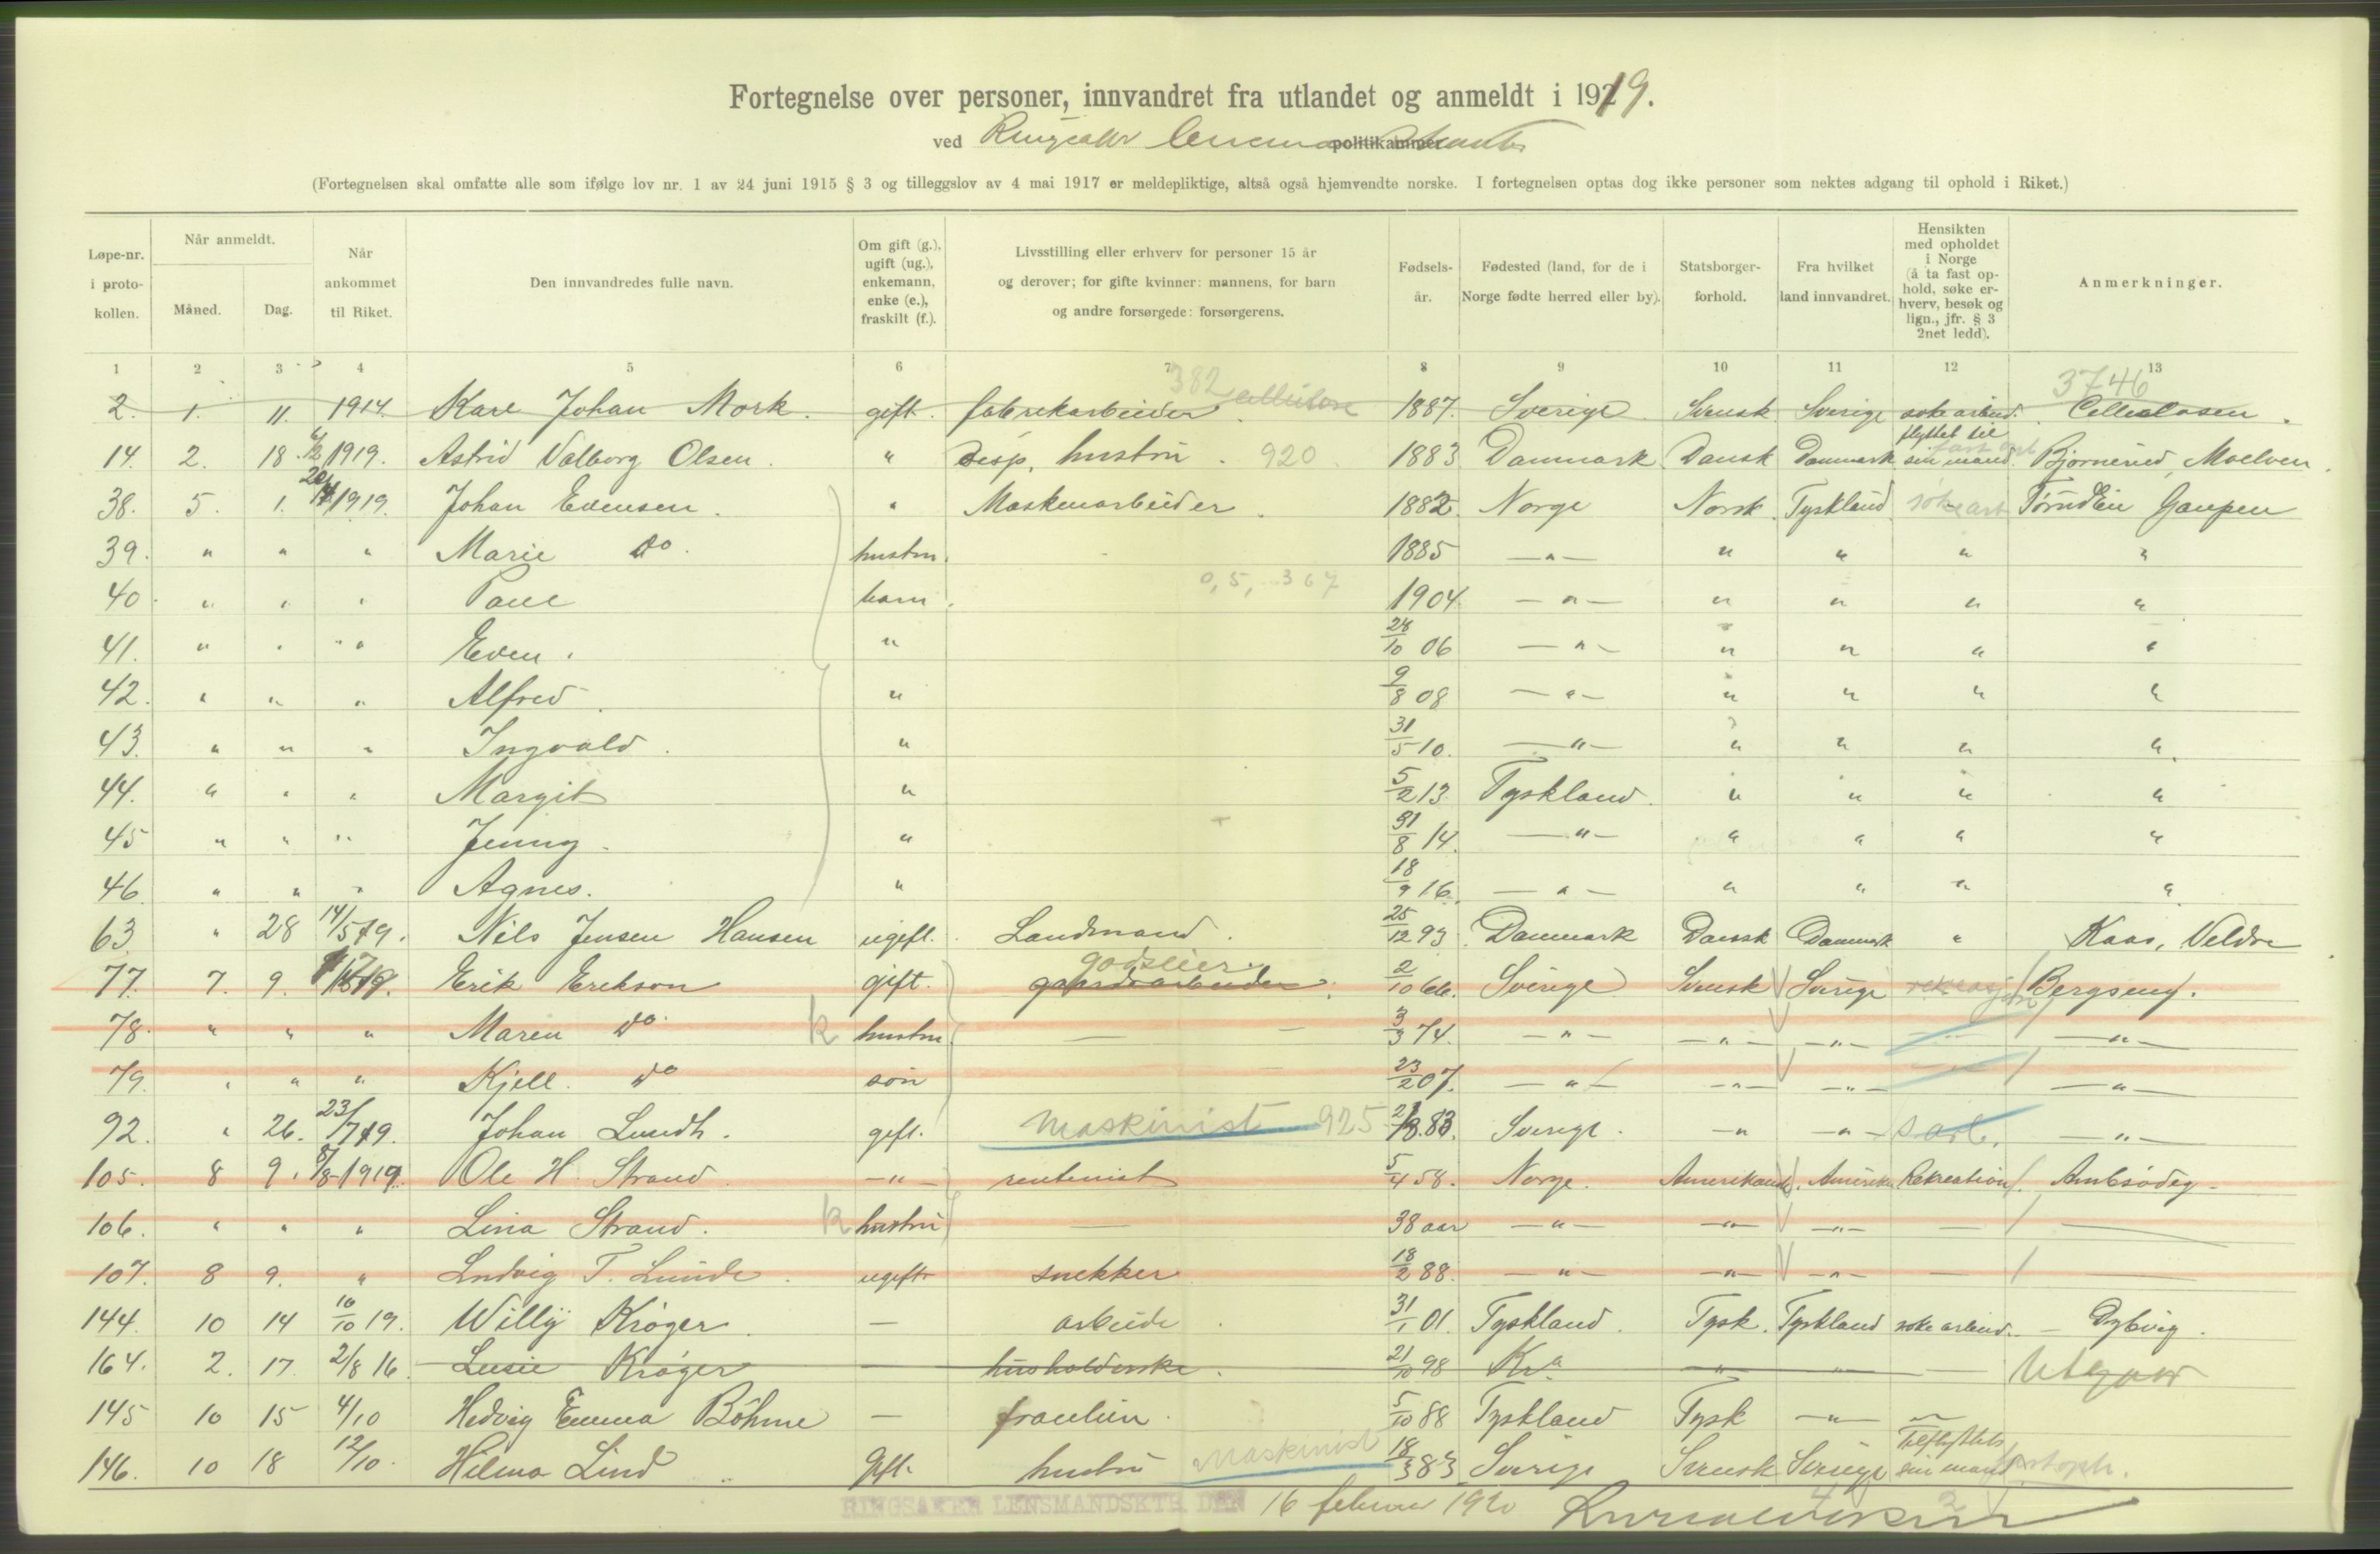 Fortegnelse over personer, innvandret fra utlandet og anmeldt i 1919.
ved Ringsaker politikammer
(Fortegnelsen skal omfatte alle som ifølge lov nr. 1 av 24 juni 1915 § 3 og tilleggslov av 4 mai 1917 er meldepliktige, altså også hjemvendte norske. I fortegnelsen optas dog ikke personer som nektes adgang til ophold i Riket.)
Løpe-nr. i proto-kollen. Når anmeldt. Måned. Dag. Når ankommet til Riket. Den innvandredes fulle navn. Om gift (g.), ugift (ug.), enkemann, enke (e.), fraskilt (f.). Livsstilling eller erhverv for personer 15 år og derover; for gifte kvinner: mannens, for barn og andre forsørgede: forsørgerens. Fødsels-år. Fødested (land, for de i Norge fødte herred eller by). Statsborger-forhold. Fra hvilket land innvandret. Hensikten med opholdet i Norge (å ta fast op-hold, søke er-hverv, besøk og lign., jfr. § 3 2net ledd). Anmerkninger.
1 2 3 4 5 6 7 8 9 10 11 12 13
382 cellulose 3746
2. 1. 11. 1914. Karl Johan Mork. gift. fabrikarbeider. 1887. Sverige. Svensk Sverige søke arbeid.
14. 2. 18. 1919. Astrid Valborg Olsen. " Disp. hustru. 920 1883 Danmark Dansk Danmark flyttet til sin mand. Bjørnerud, Moelven.
38. 5. 1. 1919. Johan Evensen. " Maskenarbeider. 1882. Norge Norsk Tyskland søke arb Gaupen
39. " " " Marie do. hustru. 1885 —"— " " " "
40. " " " Paul barn. 0,5, 367 1904 —"— " " " "
41. " " " Even. " 28/10 06 —"— " " " "
42. " " " Alfred. " 9/8 08 —"— " " " "
43. " " " Ingvald. " 31/5 10. —"— " " " "
44. " " " Margit " 5/2 13 Tyskland. " " " "
45 " " " Jenny. " 31/8 14. —"— " " " "
46. " " " Agnes. " 18/9 16. —"— " " " "
63. " 28 14/5 19. Nils Jensen Hansen ugift. Landmand. 25/12 93 Danmark Dansk Danmark " Kaas, Veldre
godseier
77. 7. 9. Erik Erikson gift. gaardsarbeider. 2/10 66. Sverige Svensk Sverige rekreasjon Bergseng.
78. " " " Maren do. k hustru — 3/3 74. —"— —"— —"— —"—
79. " " " Kjell. do søn 23/2 07. —"— —"— —"— —"—
92. " 26. 23/7 19. Johan Lundh. gift. Maskinist 925 83. Sverige. —"— —"— s. arb. —"—
105. 8 9. 8/8 1919. Ole H. Strand —"— rentenist 5/4 58. Norge. Amerikansk. Amerika Rekreation.
106. " " " Lina Strand. k hustru — 38 aar —"— —"— —"— — —
107. 8 9. " Ludvig T. Lunde. ugift snekker 18/2 88. —"— —"— —"— — —
144. 10 14 10/10 19. Willy Krøger. — arbeide. 31/1 01. Tyskland. Tysk. Tyskland søke arbeid. — Dybvig.
164. 2. 17. 2/8 16. Lusie Krøger — husholderske. 21/10 98 Kra " " — Utgaar
145 10 15 4/10 Hedvig Emma Böhme — fraulein. 5/10 88 Tyskland Tysk —"— "
146. 10 18 12/10. Hilma Lind Gift. hustru Maskinist 18/3 83 Sverige Svensk Sverige Tilflyttet sin mand fast oph.
RINGSAKER LENSMANDSKTR. DEN 16 februar 1920